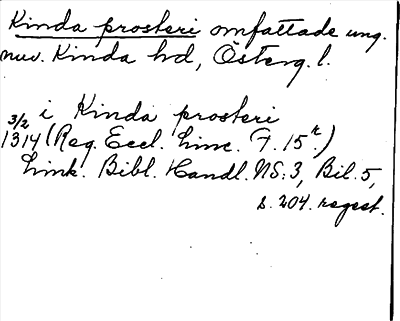 Kinda prosteri omfattade ung.
nuv. Kinda hd, Österg. l.
i Kinda prosteri
3/2 1314 (Reg. Eccl. Linc. F. 15r.)
Link. Bibl. Handl. NS: 3, Bil. 5,
s. 204. regest.